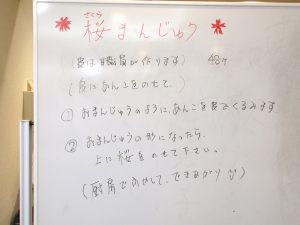 さくら
桜まんじゅう
(皮は職員が作ります) 48ヶ
(皮にあんこをのせて)
① おまんじゅうのように、あんこを皮でくるみます
② おまんじゅうの形になったら、
上に桜をのせて下さい。
(厨房でふかして、できあがり)